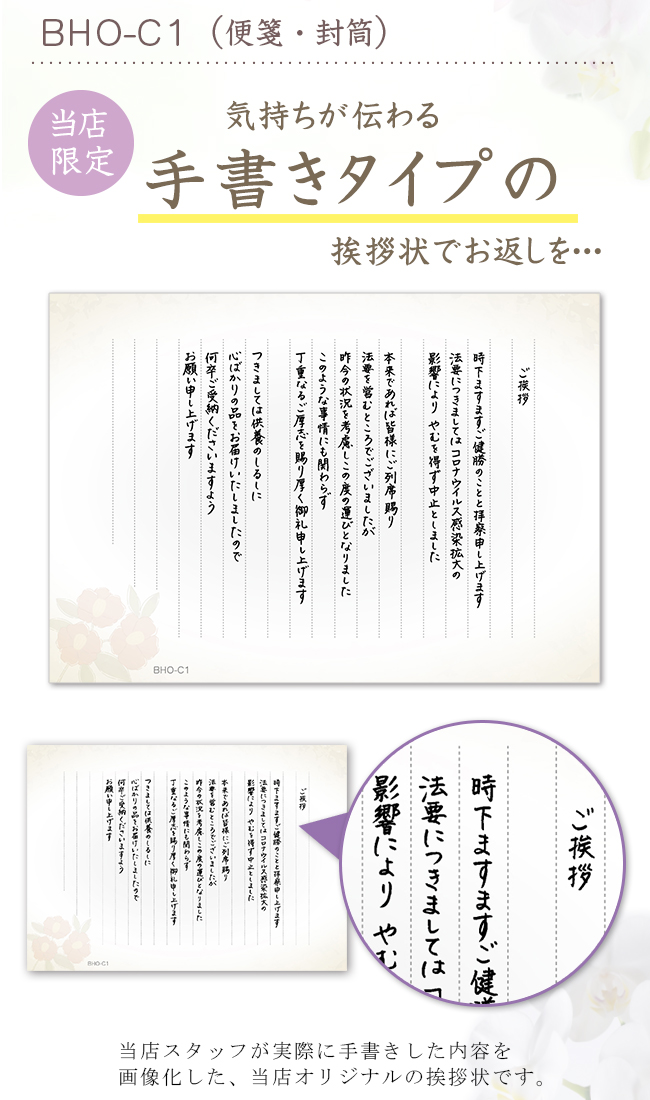 BHO-C1（便箋・封筒）
当店
限定
気持ちが伝わる
手書きタイプの
挨拶状でお返しを…
ご挨拶
時下ますますご健勝のことと拝察申し上げます
法要につきましてはコロナウイルス感染拡大の
影響により やむを得ず中止としました
本来であれば皆様にご列席賜り
法要を営むところでございましたが
昨今の状況を考慮しこの度の運びとなりました
このような事情にも関わらず
丁重なるご厚志を賜り厚く御礼申し上げます
つきましては供養のしるしに
心ばかりの品をお届けいたしましたので
何卒ご受納くださいますよう
お願い申し上げます
BHO-C1
ご挨拶
時下ますますご健勝のことと拝察申し上げます
法要につきましてはコロナウイルス感染拡大の
影響により やむを得ず中止としました
本来であれば皆様にご列席賜り
法要を営むところでございましたが
昨今の状況を考慮しこの度の運びとなりました
このような事情にも関わらず
丁重なるご厚志を賜り厚く御礼申し上げます
つきましては供養のしるしに
心ばかりの品をお届けいたしましたので
何卒ご受納くださいますよう
お願い申し上げます
BHO-C1
ご挨拶
時下ますますご健
法要につきましてはコ
影響により やむ
当店スタッフが実際に手書きした内容を
画像化した、当店オリジナルの挨拶状です。